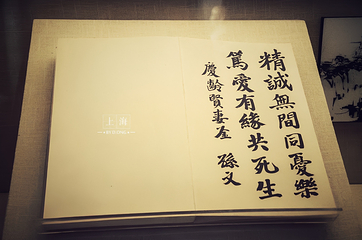 精誠無間同憂樂
篤愛有緣共死生
慶齡賢妻鑒
孫文
上海